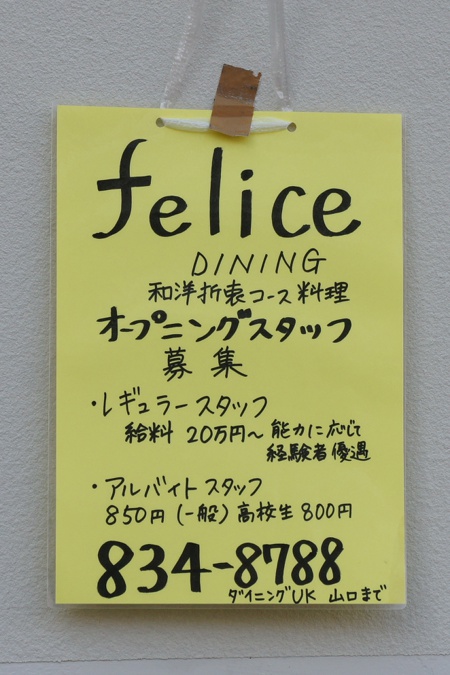 felice
DINING
和洋折衷コース料理
オープニングスタッフ
募集
・レギュラースタッフ
給料 20万円～ 能力に応じて
経験者優遇
・アルバイトスタッフ
850円 (一般) 高校生 800円
834-8788
ダイニングUK 山口まで